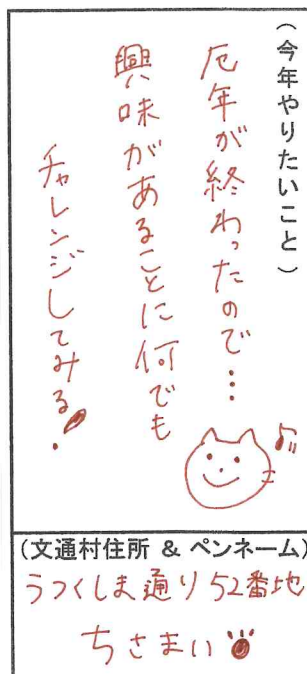 (今年やりたいこと)
厄年が終わったので…
興味があることに何でも
チャレンジしてみる!
(文通村住所 & ペンネーム)
うつくしま通り52番地
ちさまい